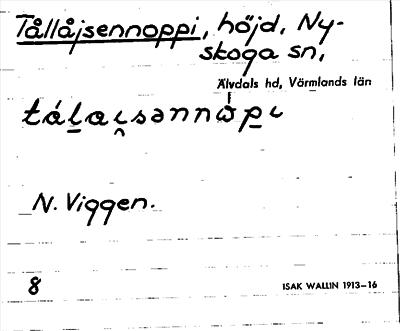 Tållåjsennoppi, höjd, Ny-
skoga sn,
Älvdals hd, Värmlands län
N. Viggen.
8
ISAK WALLIN 1913–16